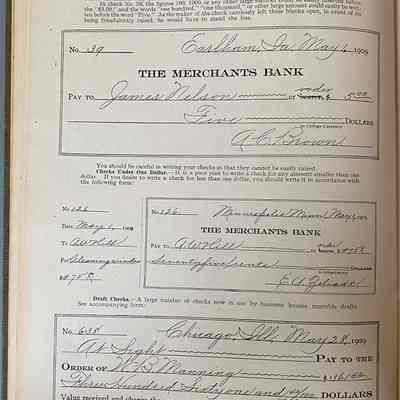 In check No. 39, the figures 100, 1000, or any other large
the "$5.00," and the words "one hundred," "one thousand," or other large amount could easily be writ-
ten before the word "Five." As the maker of the check carelessly left these blanks open, in event of its
being fraudulently raised, he would have to stand the loss.
No. 39 Earlham, Ia. May 1, 1909
THE MERCHANTS BANK
PAY TO James Nelson or order bearer, $ 5.00
Five DOLLARS
In College Currency
A. C. Brown
You should be careful in writing your checks so that they cannot be easily raised.
Checks Under One Dollar.—It is a poor plan to write a check for any amount smaller than one
dollar. If you desire to write a check for less than one dollar, you should write it in accordance with
the following form:
No. 126
Date May 1, 1909
To A W Hill
For
$ .75
No. 126 Minneapolis Minn May 1, 190
THE MERCHANTS BANK
PAY TO A W Hill or order bearer $
Seventyfive cents DOLLARS
In College Currency
Draft Checks.—A large number of checks now in use by business houses resemble drafts.
See accompanying form:
No. 638 Chicago, Ill., May 28, 1909
At Sight PAY TO THE
ORDER OF W. B. Manning $
Three Hundred Sixty one and DOLLARS
Value received and charge the